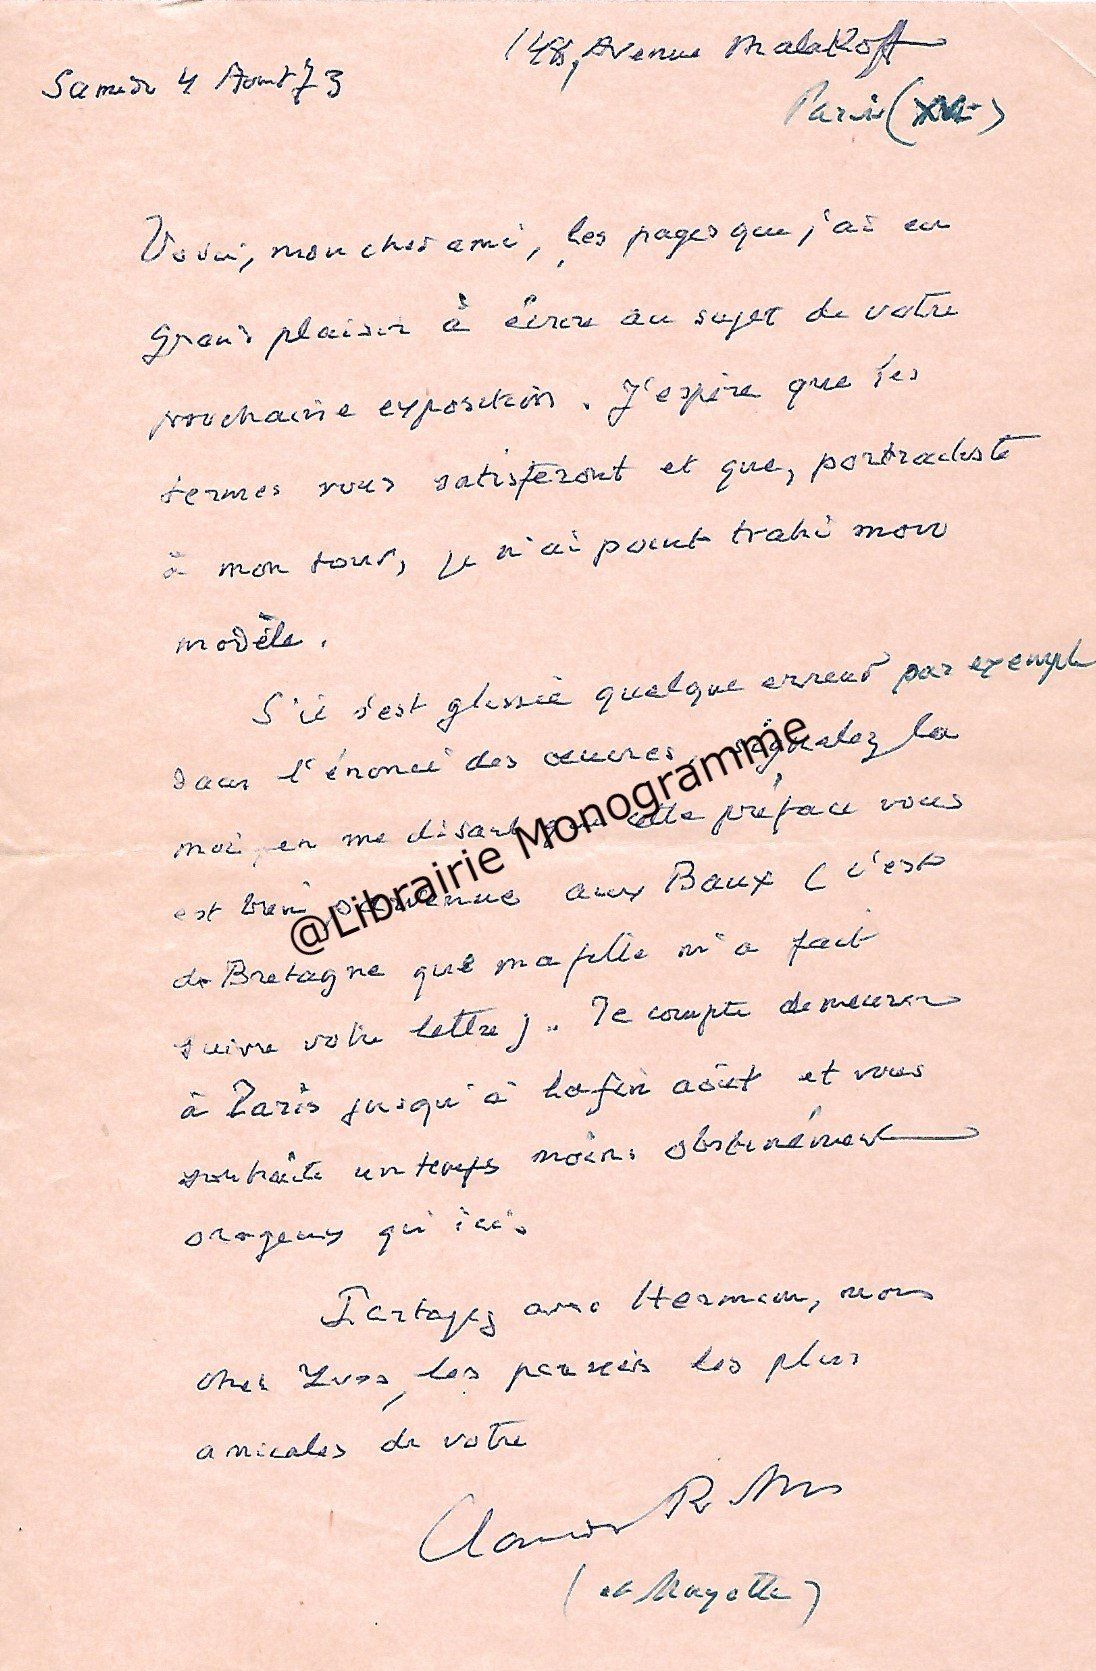 148, Avenue Malakoff
Samedi 4 Août 73
Paris (XVIe)
Voici, mon cher ami, les pages que j'ai eu
grand plaisir à écrire au sujet de votre
prochaine exposition. J'espère que les
termes vous satisferont et que, portraitiste
à mon tour, je n'ai point trahi mon
modèle.
S'il s'est glissé quelque erreur par exemple
dans l'énoncé des œuvres, signalez la
moi, en me disant que cette préface vous
est bien parvenue aux Baux (c'est
de Bretagne que ma fille m'a fait
suivre votre lettre).. Je compte demeurer
à Paris jusqu'à la fin août et vous
souhaite un temps moins obstinément
orageux qu'ici.
Partagez avec Hermann, mon
cher Yves, les pensées les plus
amicales de votre
Claude
(et Mayotte)
@Librairie Monogramme